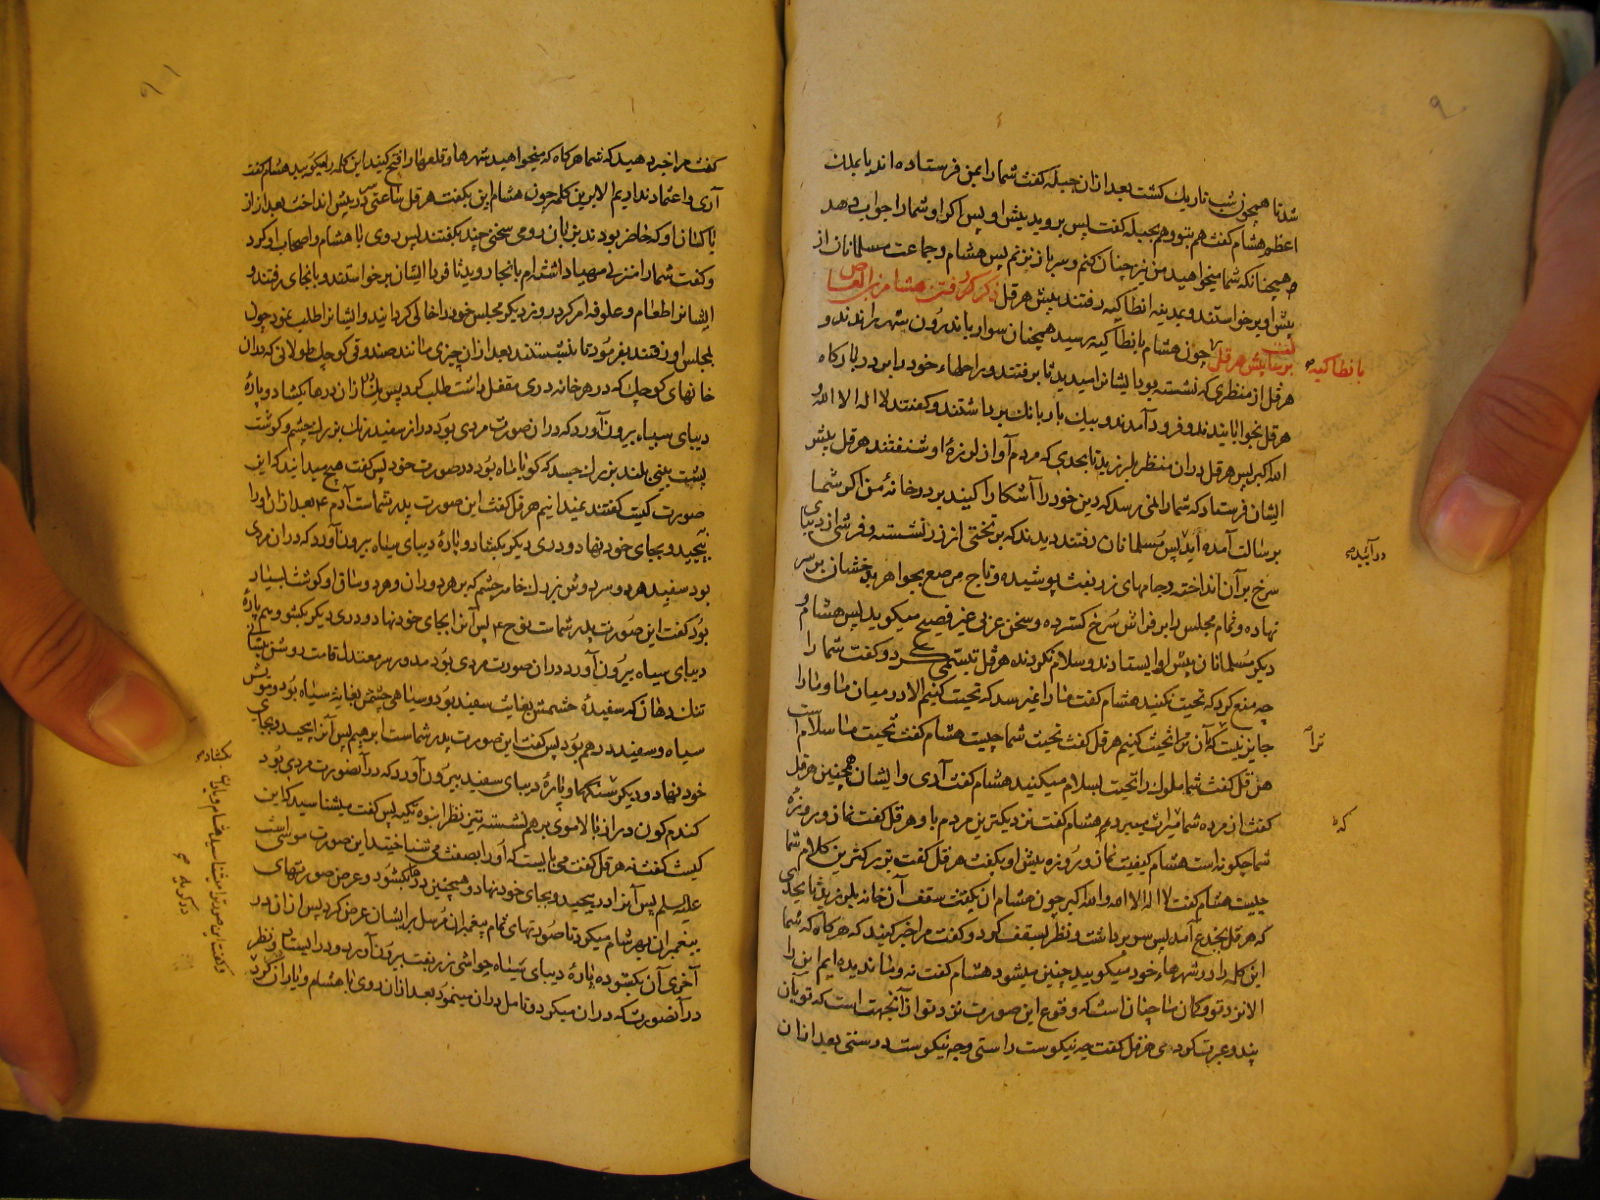 ۹
شد تا همچون شب تاریک کشت بعد ازان جبله کفت شما را بمن فرستاده اند یا بملک
اعظم هشام کفت هم بتو و هم بجبله کفت پس بروید پیش او پس اکر او شما را جواب دهد
همچنانکه شما میخواهید من نیز چنان کنم و سر باز نزنم پس هشام و جماعت مسلمانان از
پیش او برخواستند و بمدینه انطاکیه رفتند پیش هرقل ذکر کردن رفتن هشام بن العاص
برسالت پیش هرقل بانطاکیه چون هشام بانطاکیه رسید همچنان سوار باندرون شهر راندند و
هرقل از منظری که نشسته بود ایشانرا میدید تا برفتند و راحلهاء خود را بر در بارکاه
هرقل بخوابانیدند و فرود آمدند و بیک بار بانک برداشتند و کفتند لا اله الا الله و
الله اکبر پس هرقل دران منظر بلرزید تا بحدی که مردم آواز لرزهٔ او شنفتند هرقل پیش
ایشان فرستاد که شما را نمی رسد که دین خود را آشکارا کنید بر در خانهٔ من اکر شما
برسالت آمده اید پس مسلمانان رفتند دیدند که بر تختی از زر نشسته و فرشی از دیبای
درآیید
سرخ بر آن انداخته و جامهای زربفت پوشیده و تاج مرصع بجواهر بدخشان بر سر
نهاده و تمام مجلس را بر فراش سرخ کسترده و سخن عربی غیر فصیح میکوید پس هشام و
دیکر مسلمانان پیش او ایستادند و سلام نکردند هرقل تبسمی کرد و کفت شما را
چه منع کرد که تحیت نکنید هشام کفت ما را نمیرسد که تحیت کنیم الا در میان ما و ما را
جایز نیست که آن ترا تحیت کنیم هرقل کفت تحیت شما چیست هشام کفت تحیت ما سلام است
ترا
هرقل کفت شما ملوک را تحیت بسلام میکنید هشام کفت آری و ایشان همچنین هرقل
کفت از مرده شما میراث میبرد هشام کفت نزدیکترین مردم باو هرقل کفت نماز و روزهٔ
که
شما چکونه است هشام کیفیت نماز و روزه پیش او بکفت هرقل کفت بزرکترین کلام شما
چیست هشام کفت لا اله الا الله و الله اکبر چون هشام ان بکفت سقف آن خانه بلرزید تا بحدی
که هرقل بجزع آمد پس سر برداشت و نظر بسقف کرد و کفت مرا خبر کنید که هرکاه که شما
این کلمه را در شهرهاء خود میکویید چنین میشود هشام کفت نه و ما ندیده ایم این را
الا نزد تو و کمان ما چنان است که وقوع این صورت نزد تو از آنجهت است که تو بآن
پند و عبرت کردی هرقل کفت چه نیکوست راستی و چه نیکوست درستی بعد ازان
۹۱
کفت مرا خبر دهید که شما هرکاه که میخواهید شهرها و قلعها را فتح کنید این کلمه را میکویید هشام کفت
آری و اعتماد نداریم الا برین کلمه چون هشام این بکفت هرقل ساعتی سر در پیش انداخت بعد ازان
با کسان او که حاضر بودند بزبان رومی سخنی چند بکفتند پس روی با هشام و اصحاب او کرد
و کفت شما را منزلی مهیا داشته ام بانجا روید تا فردا ایشان برخواستند و بانجای رفتند و
ایشانرا طعام و علوفه امر کرد روز دیکر مجلس خود را خالی کردانید و ایشانرا طلب نمود چون
بمجلس او رفتند بفرمود تا بنشستند بعد ازان چیزی مانند صندوقی کوچک طولانی که دران
خانهای کوچک که در هر خانه دری مقفل داشت طلب کرد پس یکی ازان درها بکشاد و پارهٔ
دیبای سیاه بیرون آورد که دران صورت مردی بود دراز سفید رنک بزرک چشم و کوشت
پشت بینی بلند بزرک جسد که کویا ماه بود در صورت خود پس کفت هیچ میدانید که این
صورت کیست کفتند نمیدانیم هرقل کفت این صورت پدر شماست آدم ع بعد ازان او را
پیچید و بجای خود نهاد و دری دیکر بکشاد و پارهٔ دیبای سیاه بیرون آورد که دران مردی
بود سفید هر دو سر دوش بزرک خانه چشم که بر هر دو ران و هر دو ساق او کوشت بسیار
بود کفت این صورت پدر شماست نوح ع پس آنرا بجای خود نهاد و دری دیکر بکشود و هم پارهٔ
دیبای سیاه بیرون آورد دران صورت مردی بود مدور سر معتدل قامت روشن پیشانی
تنک دهان که سفیدهٔ چشمش بغایت سفید بود و سیاهی چشمش بغایت سیاه بود و مویش
سیاه و سفید در هم بود پس کفت این صورت پدر شماست ابرهیم پس آنرا پیچید و بجای
خود نهاد و دیکر و پارهٔ دیبای سفید بیرون آورد که در آنصورت مردی بود
بکشاد
کندم کون دراز بالا موی بر هم نشسته تیز نظر انبوه تکیه پس کفت میشناسید که این
کیست کفتند هرقل کفت می بایست که او را بصفت می شناختید این صورت موسی است
علیه السلم پس آنرا در پیچید و بجای خود نهاد و همچنین در بکشود و عرض صورتهای
پیغمبران بهشام میکرد تا صورتهای تمام پیغمبران مرسل بر ایشان عرض کرد پس ازان در
آخری آن بکشود و پارهٔ دیبای سیاه حواشی زربفت بیرون آورد و در ایستاد و نظر
در آنصورت که دران میکرد و تامل دران مینمود بعد ازان روی با هشام و یاران کرد
و کفت این صورت را میشناسید هشام و یاران
در کریه